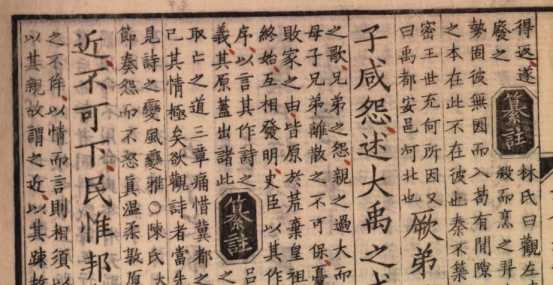 得返遂
廢之
纂註
林氏曰觀左
殺而烹之羿
勢固彼無因而入苟有間隙
之本在此不在彼也秦不築
密王世充何所因又
曰禹都安邑河北也
厥弟
子咸怨述大禹之戒
之歌兄弟之怨親之過大而
母子兄弟離散之不可保憂
敗家之由皆原於荒棄皇祖
終始互相發明史臣以其作
序以言其作詩之
義其原蓋出諸此
纂註
呂
之
取亡之道三章痛惜冀都之
已其情極矣欲觀詩者當先
見詩之變風變雅○陳氏大
節奏怨而不怒真溫柔敦厚
近不可下民惟邦
之不侔以情而言則相須以
以其親故謂之近以其踈故